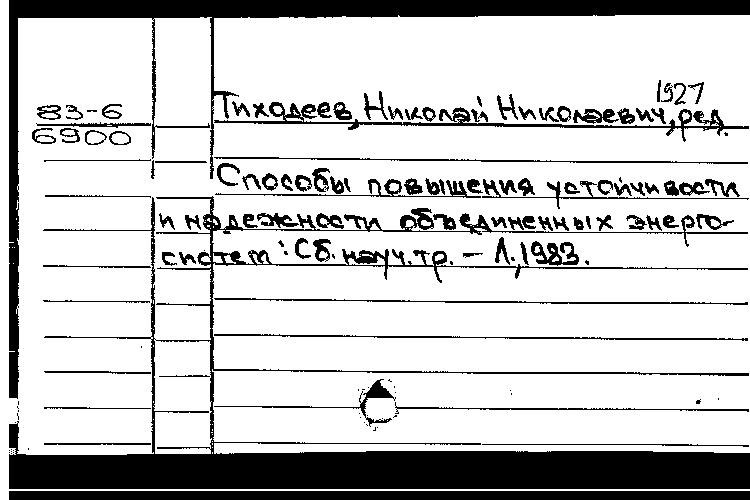 1927
83-6
Тиходеев, Николай Николаевич, ред.
6900
Способы повышения устойчивости
и надежности объединенных энерго-
систем: Сб. науч. тр. – Л., 1983.